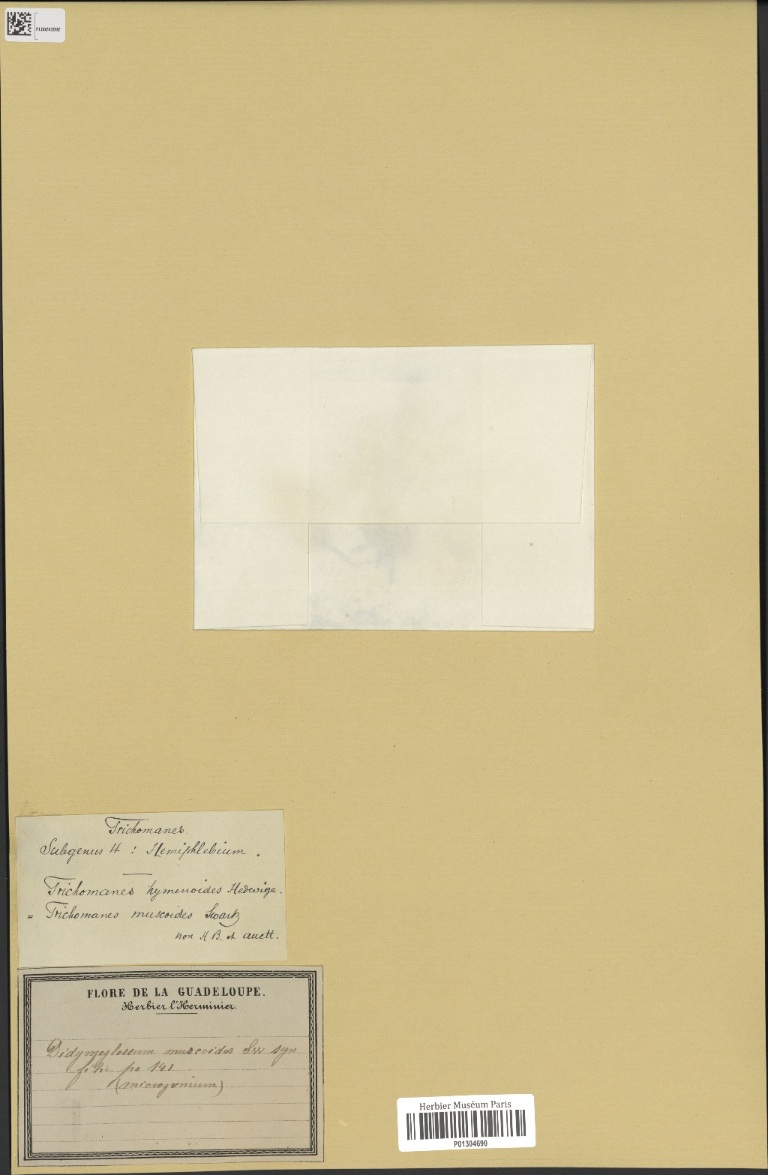 Trichomanes
Subgenus 4 : Hemiphlebium .
Trichomanes hymenoides Hedwige.
= Trichomanes muscoides Swartz
non H B. et auctt.
FLORE DE LA GUADELOUPE.
Herbier l'Herminier.
Didymoglossum muscoides Sw syn
fil. pa 141
(microgonium)
Herbier Muséum Paris
P01304690